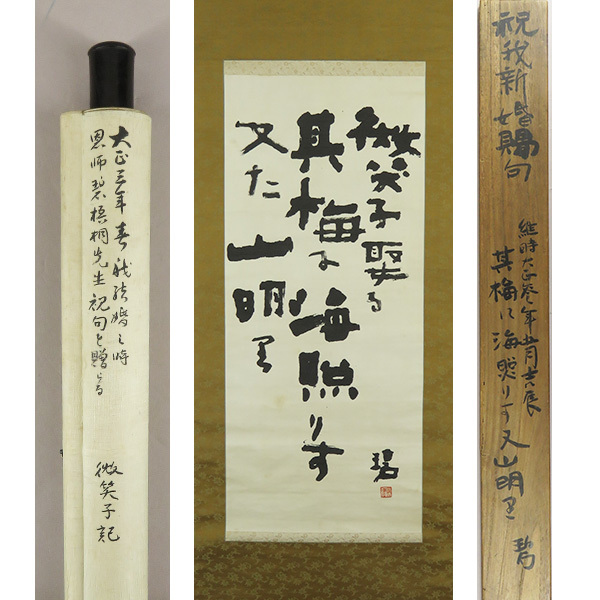 大正三年春我結婚之時
恩師碧梧桐先生祝句を贈らる
微笑子記
微笑子娶る
其梅に海照りす
又た山明り
碧
祝我新婚賜句
維時大正参年五月吉辰
其梅に海照りす又山明り 碧